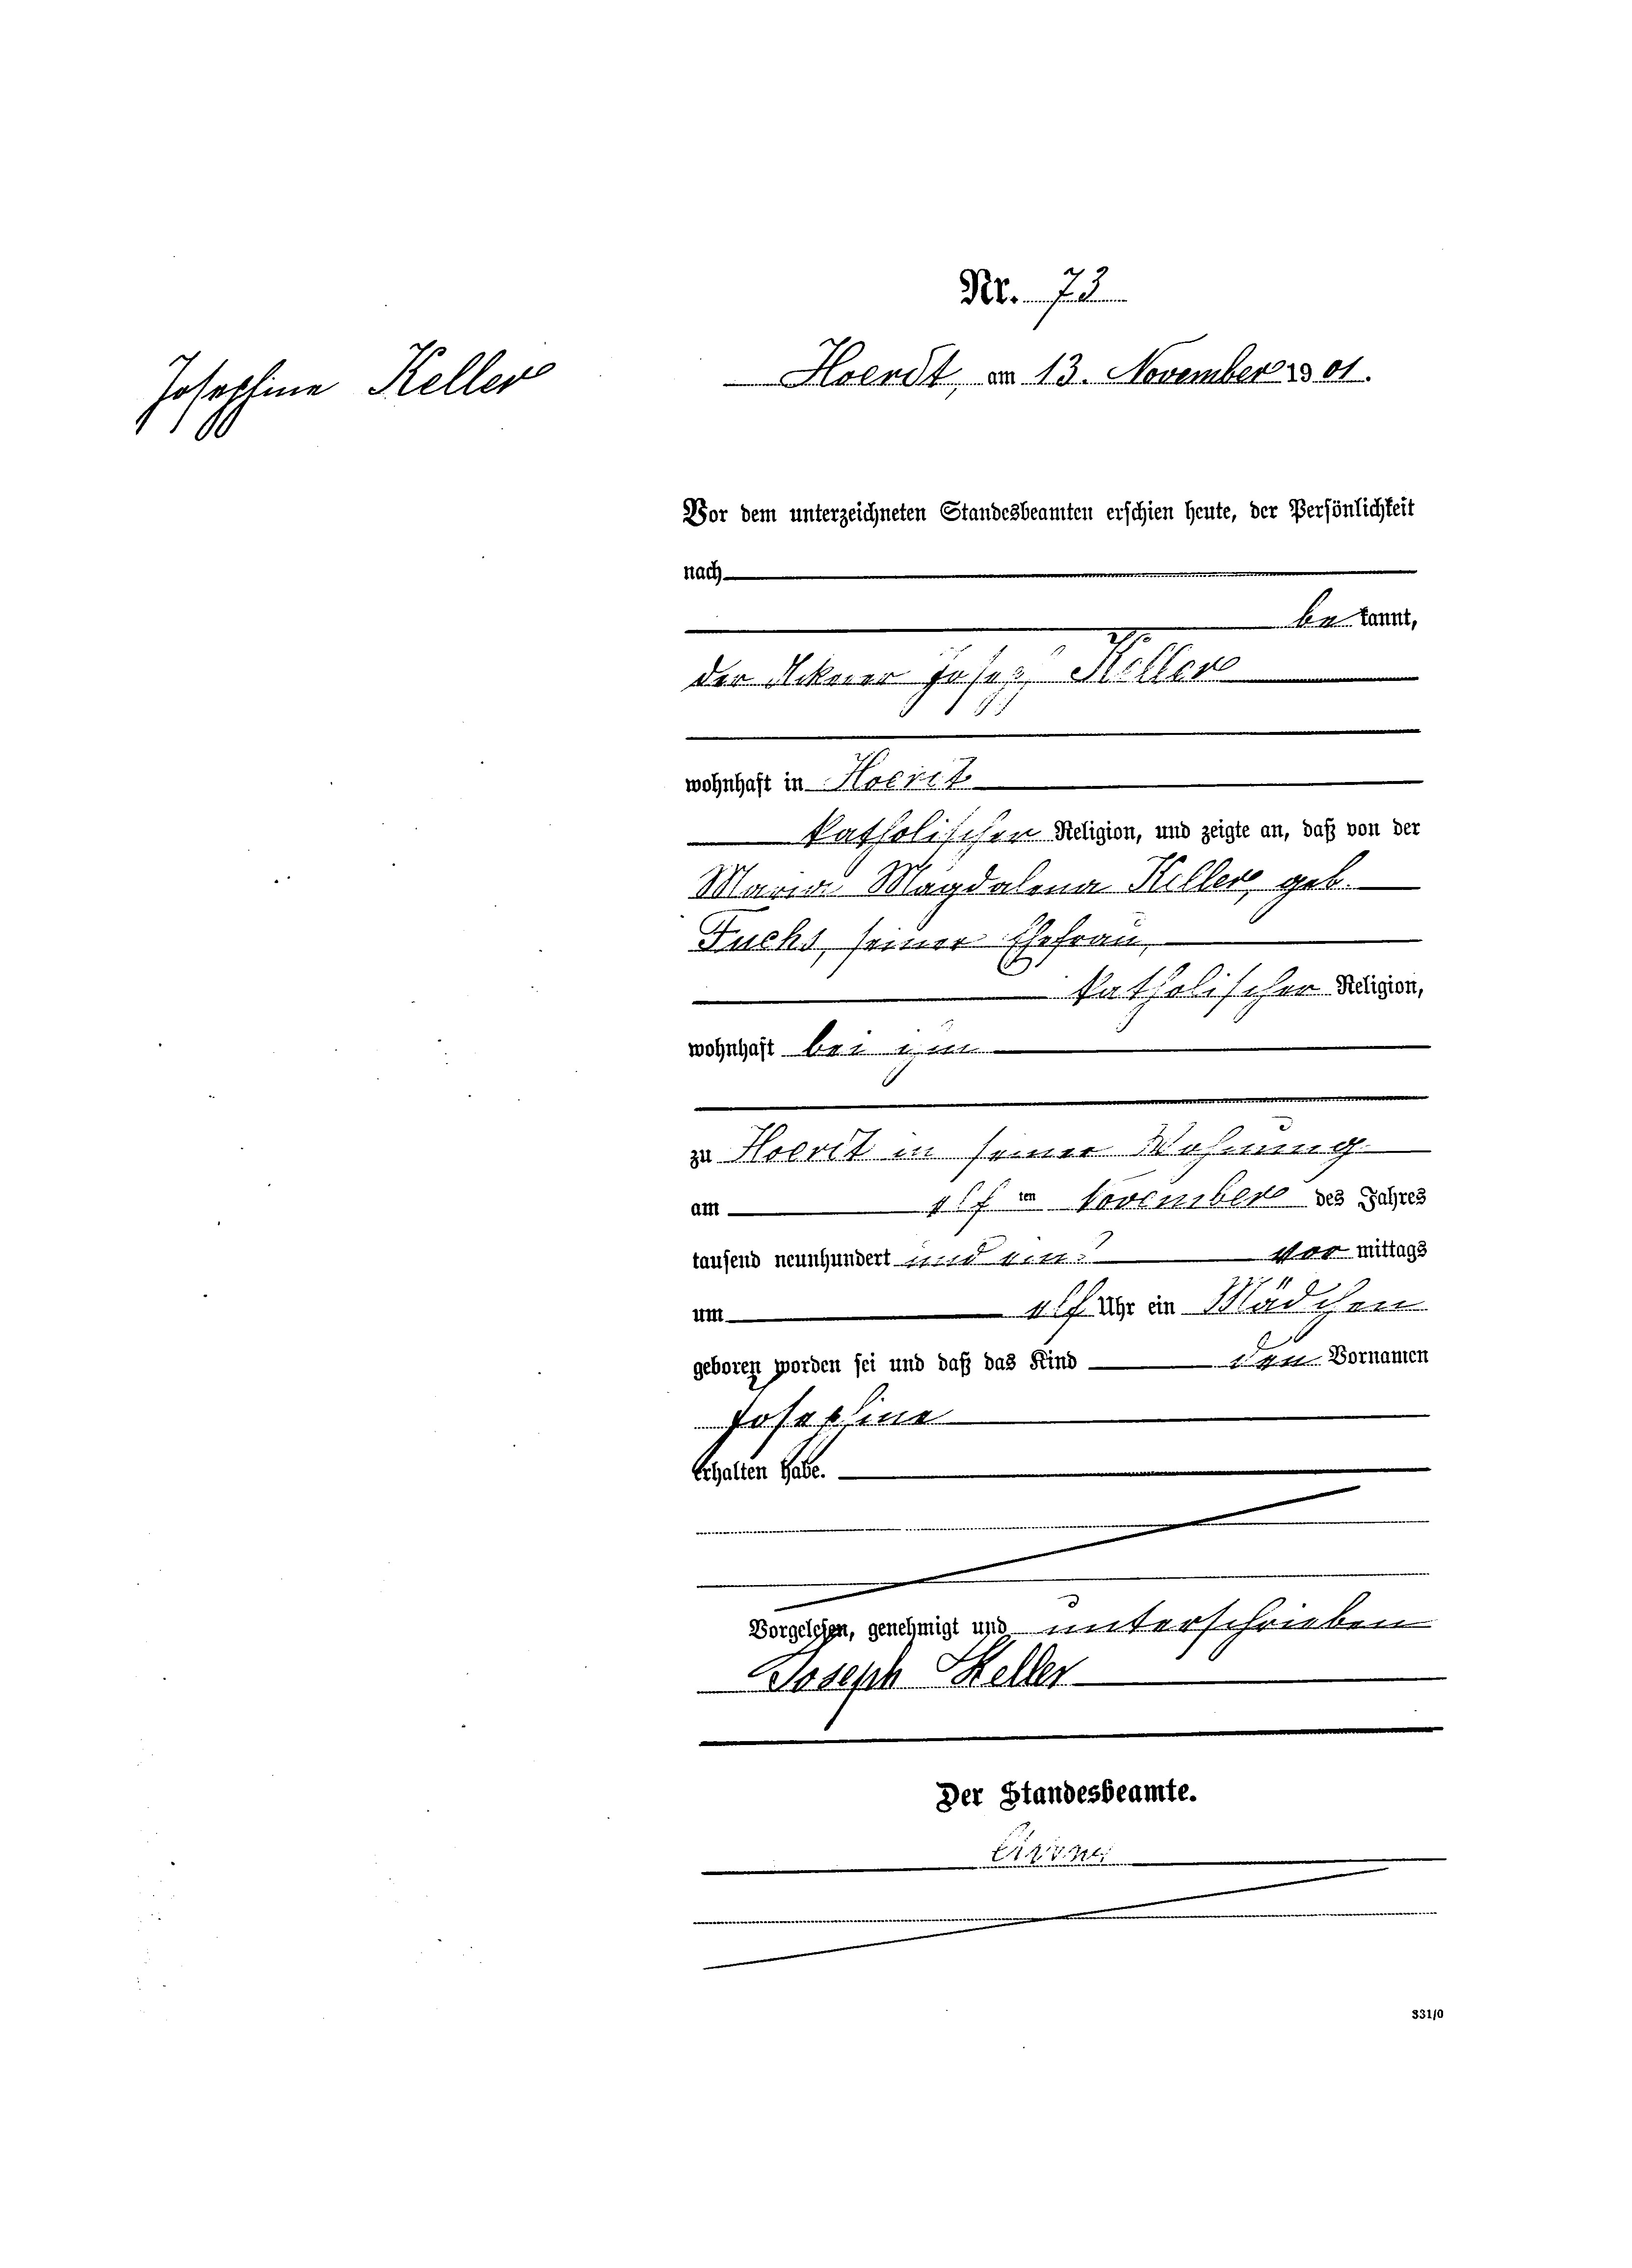 Nr. 73
Josephine Keller
Hoerdt, am 13. November 1901.
Vor dem unterzeichneten Standesbeamten erschien heute, der Persönlichkeit
nach
be kannt,
der Ackerer Joseph Keller
wohnhaft in Hoerdt
katholischer Religion, und zeigte an, daß von der
Maria Magdalena Keller, geb.
Fuchs, seiner Ehefrau,
katholischer Religion,
wohnhaft bei ihm
zu Hoerdt in seiner Wohnung
am elf ten November des Jahres
tausend neunhundert und eins vor mittags
um elf Uhr ein Mädchen
geboren worden sei und daß das Kind den Vornamen
Josephine
erhalten habe.
Vorgelesen, genehmigt und unterschrieben
Joseph Keller
Der Standesbeamte.
331/0